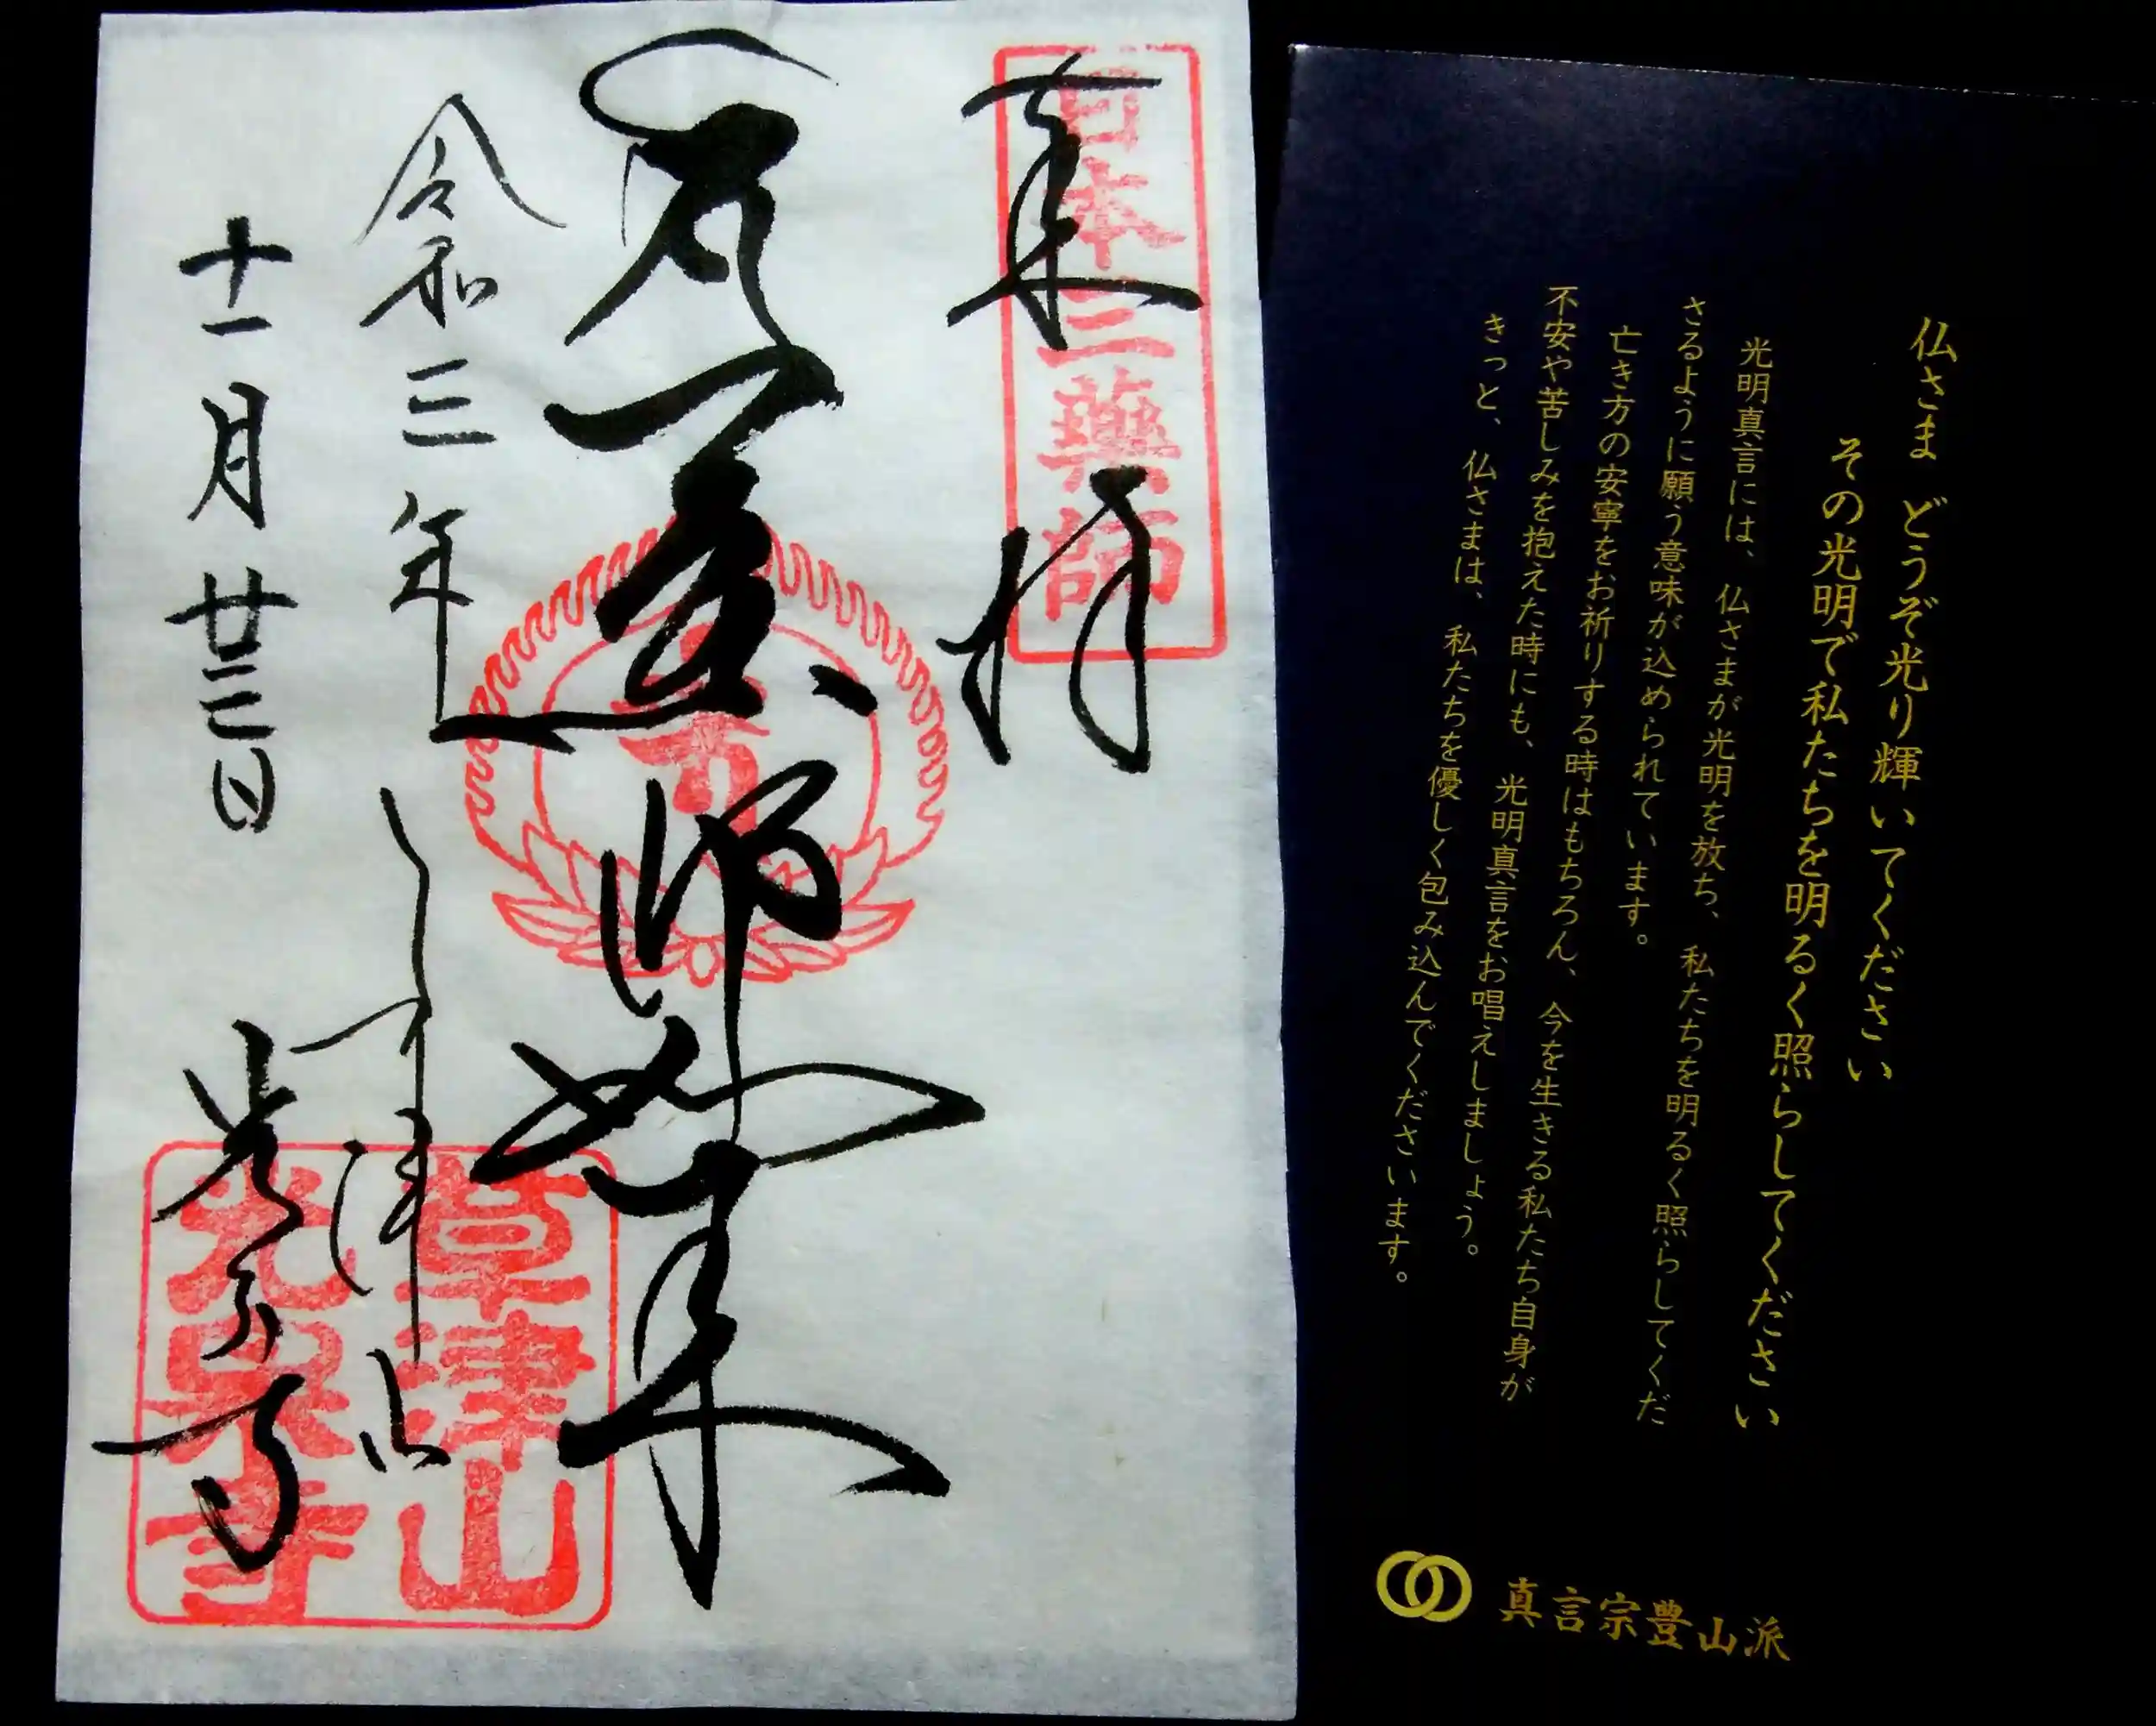 奉拝
日本三薬師
薬師如来
令和三年
十一月廿三日
草津山
光泉寺
草津山
光泉寺
仏さま どうぞ光り輝いてください
その光明で私たちを明るく照らしてください
光明真言には、仏さまが光明を放ち、私たちを明るく照らしてくだ
さるように願う意味が込められています。
亡き方の安寧をお祈りする時はもちろん、今を生きる私たち自身が
不安や苦しみを抱えた時にも、光明真言をお唱えしましょう。
きっと、仏さまは、私たちを優しく包み込んでくださいます。
真言宗豊山派